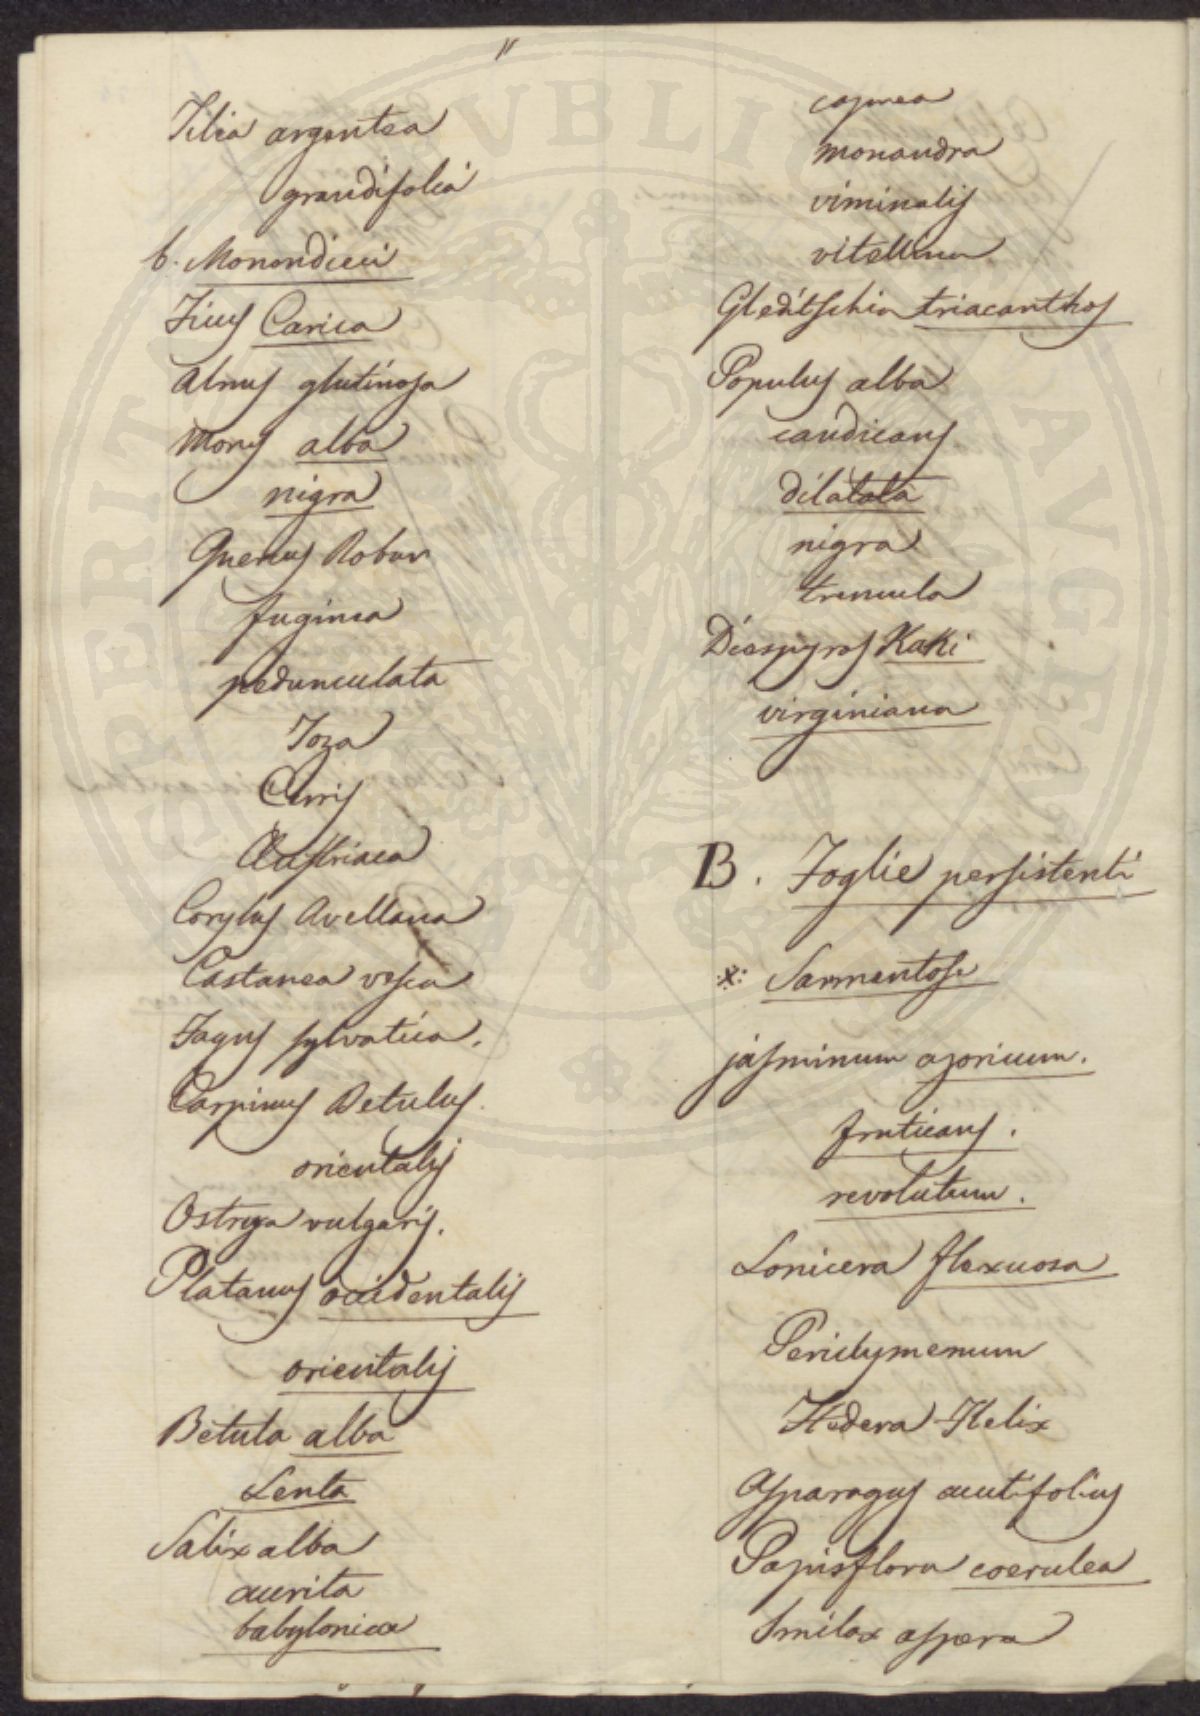 Tilia argentea
grandifolia
b. Monondieci
Ficus Carica
Alnus glutinosa
Morus alba
nigra
Quercus Robur
fuginea
pedunculata
Toza
Cerris
Austriaca
Corylus Avellana
Castanea vesca
Fagus sylvatica.
Carpinus Betulus.
orientalis
Ostrya vulgaris.
Platanus occidentalis
orientalis
Betula alba
Lenta
Salix alba
aurita
babylonica
caprea
monandra
viminalis
vitellina
Gleditschia triacanthos
Populus alba
candicans
dilatata
nigra
tremula
Diospyros Kaki
virginiana
B. Foglie persistenti
Sarmentose
jasminum azoricum.
fruticans.
revolutum.
Lonicera flexuosa
Periclymenum
Hedera Helix
Asparagus acutifolius
Papisflora coerulea
Smilax aspera